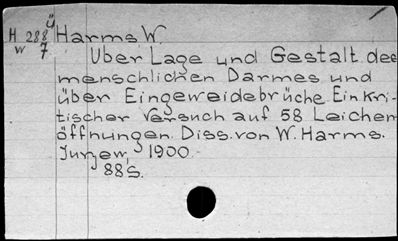 H 288 ü Harms W.
w 7
Über Lage und Gestalt des
menschlichen Darmes und
über Eingeweidebrüche. Ein kri-
tischer Versuch auf 58 Leichen
öffnungen. Diss. von W. Harms.
Jurjew, 1900.
88 S.